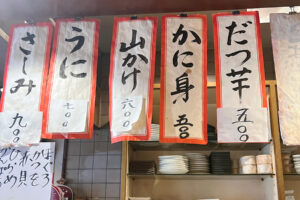 だつ芋
五〇〇
かに身
五〇〇
山かけ
六〇〇
うに
七〇〇
さしみ
九〇〇